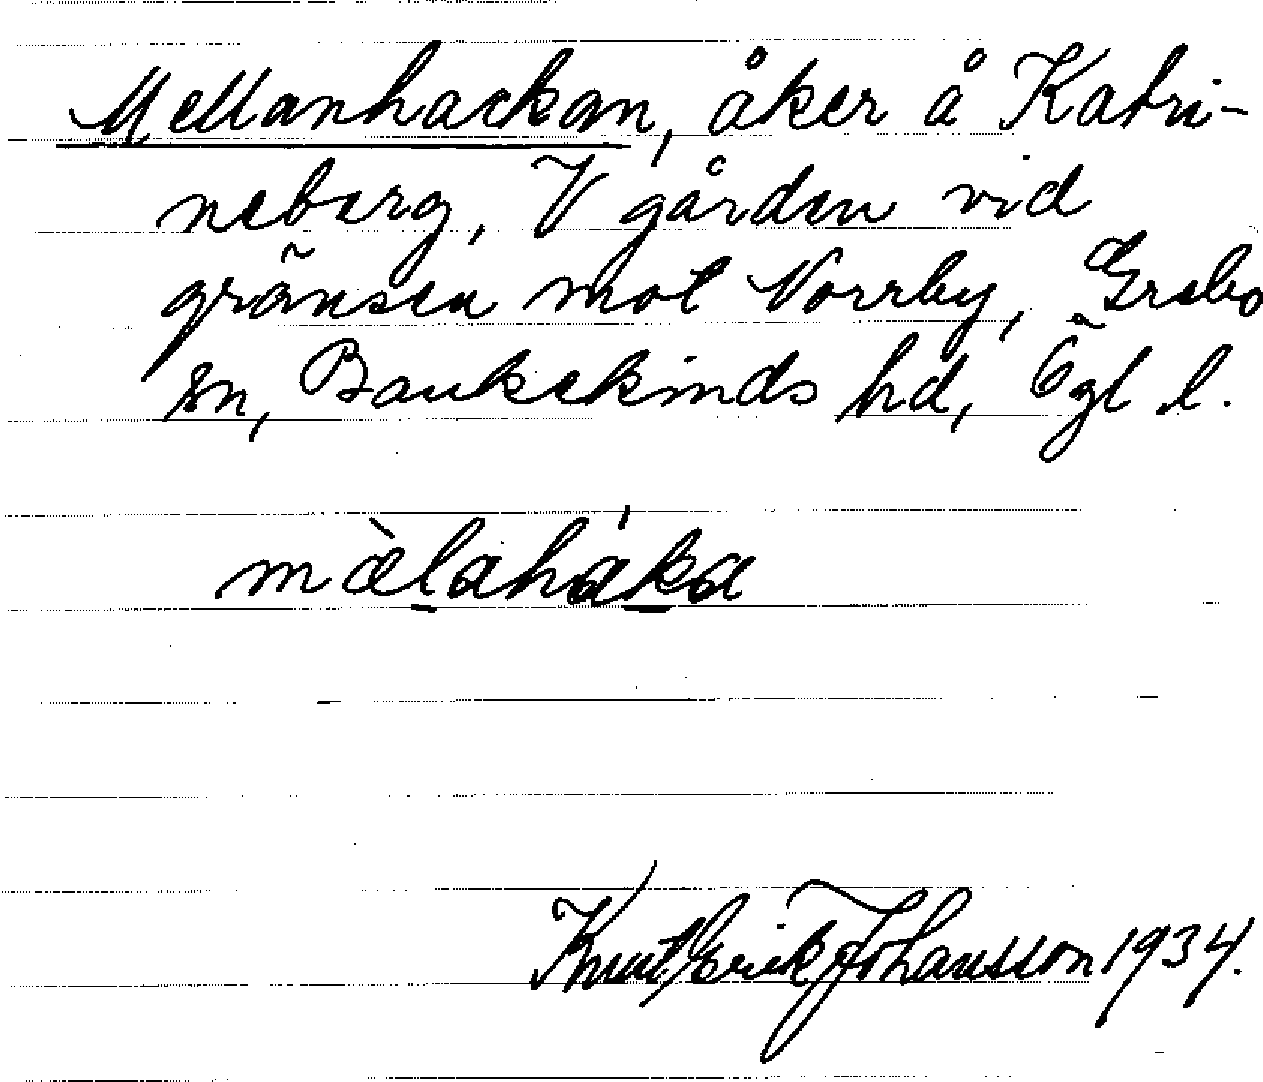 Mellanhackan, åker å Katri-
neberg, V gården vid
gränsen mot Norrby, Grebo
sn, Bankekinds hd, Ögl l.
mæ̀laháka
Knut Erik Johansson 1934.